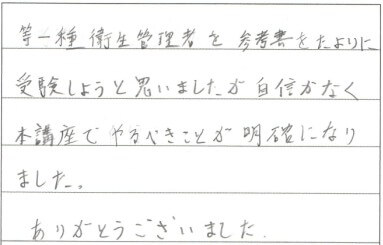 等一種衛生管理者を参考書をたよりに
受験しようと思いましたが自信がなく
本講座でやるべきことが明確になり
ました。
ありがとうございました.